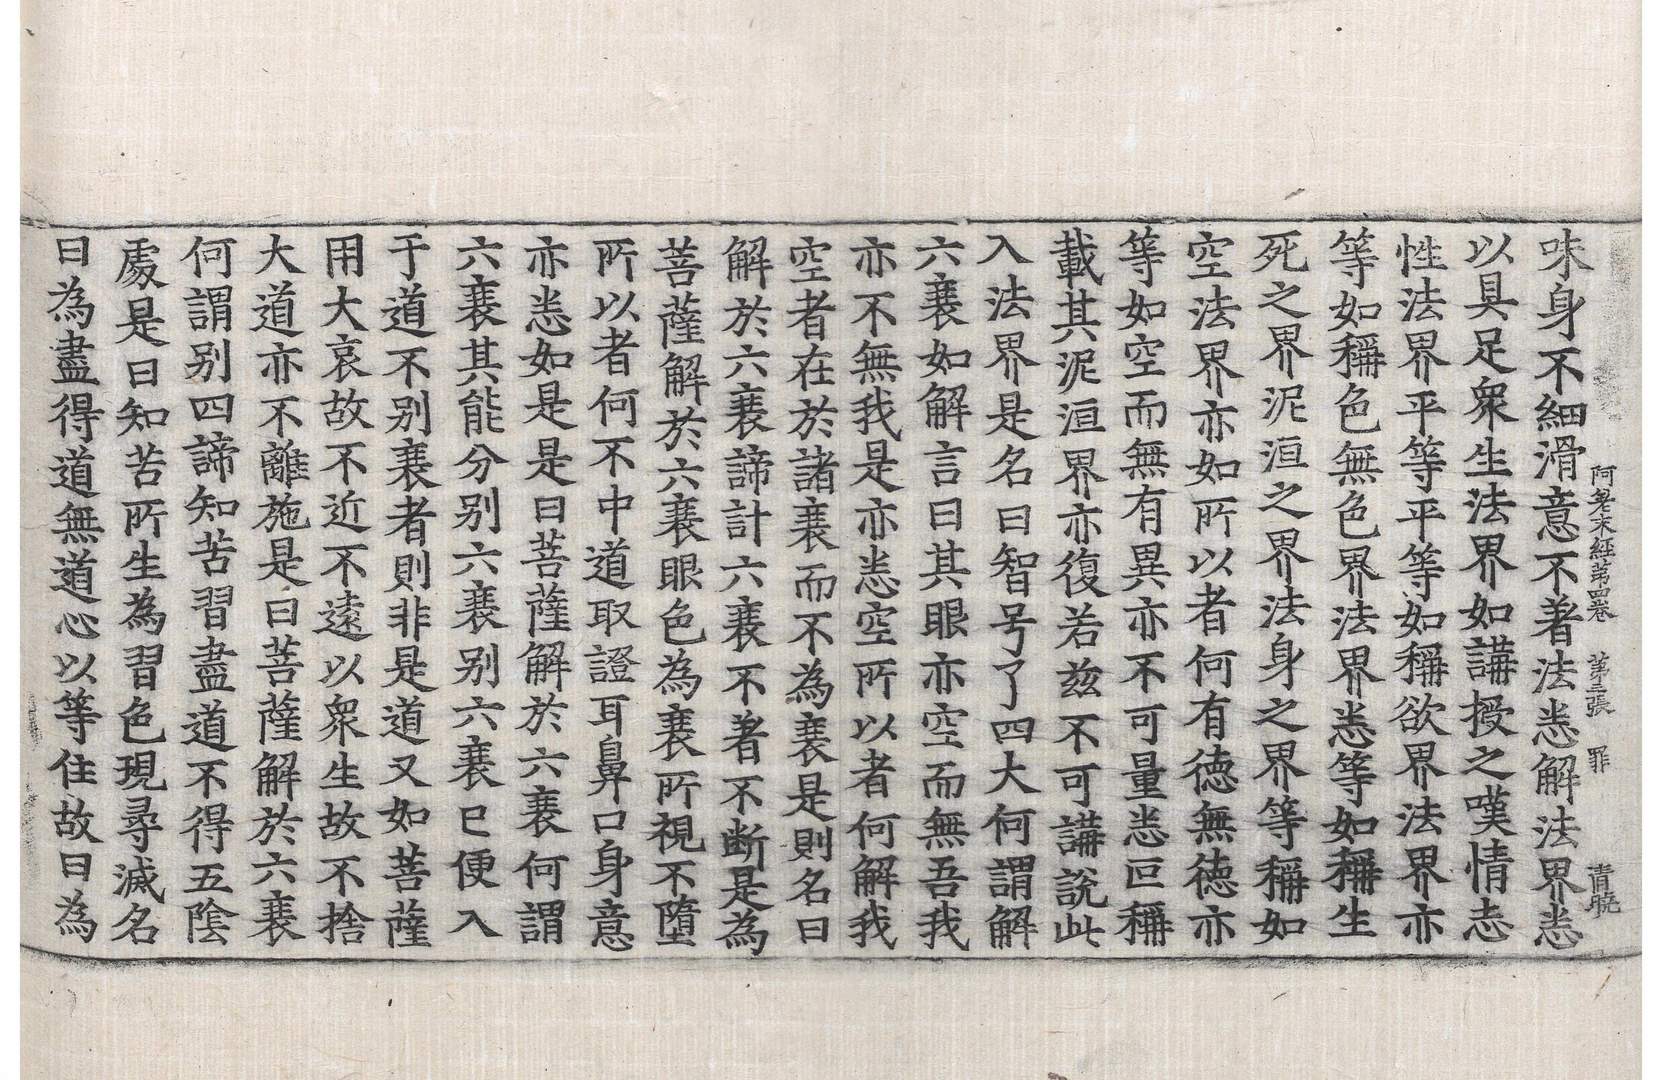 阿差末經第四卷　第三張　罪　青曉
味身不細滑意不著法悉解法界悉
以具足衆生法界如講授之嘆情志
性法界平等平等如稱欲界法界亦
等如稱色無色界法界悉等如稱生
死之界泥洹之界法身之界等稱如
空法界亦如所以者何有德無德亦
等如空而無有異亦不可量悉叵稱
載其泥洹界亦復若兹不可講說此
入法界是名曰智号了四大何謂解
六衰如解言曰其眼亦空而無吾我
亦不無我是亦悉空所以者何解我
空者在於諸衰而不為衰是則名曰
解於六衰諦計六衰不著不断是為
菩薩解於六衰眼色為衰所視不墮
所以者何不中道取證耳鼻口身意
亦悉如是是曰菩薩解於六衰何謂
六衰其能分别六衰别六衰已便入
于道不别衰者則非是道又如菩薩
用大哀故不近不遠以衆生故不捨
大道亦不離施是曰菩薩解於六衰
何謂别四諦知苦習盡道不得五陰
處是曰知苦所生為習色現尋滅名
曰為盡得道無道心以等住故曰為